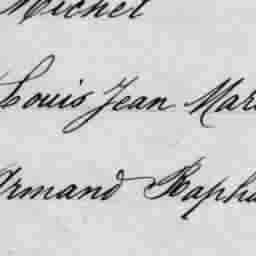 Michel
Louis Jean Mar
Armand Rapha